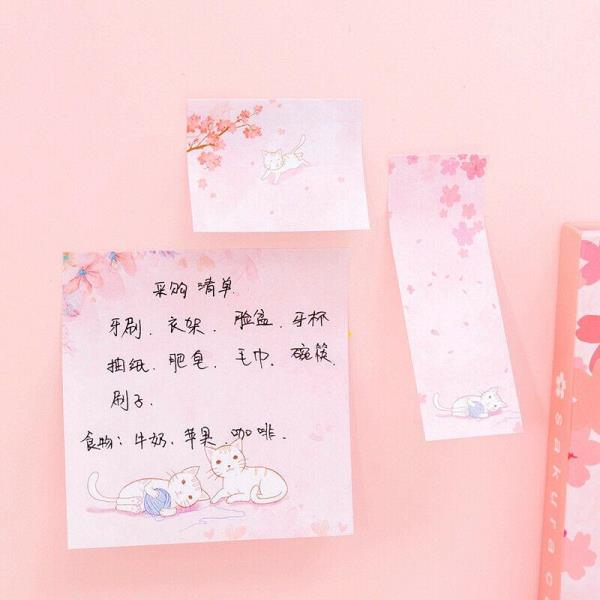 采购清单
牙刷、衣架、脸盆、牙杯
抽纸、肥皂、毛巾、碗筷、
刷子、
食物：牛奶、苹果、咖啡、
sakura c